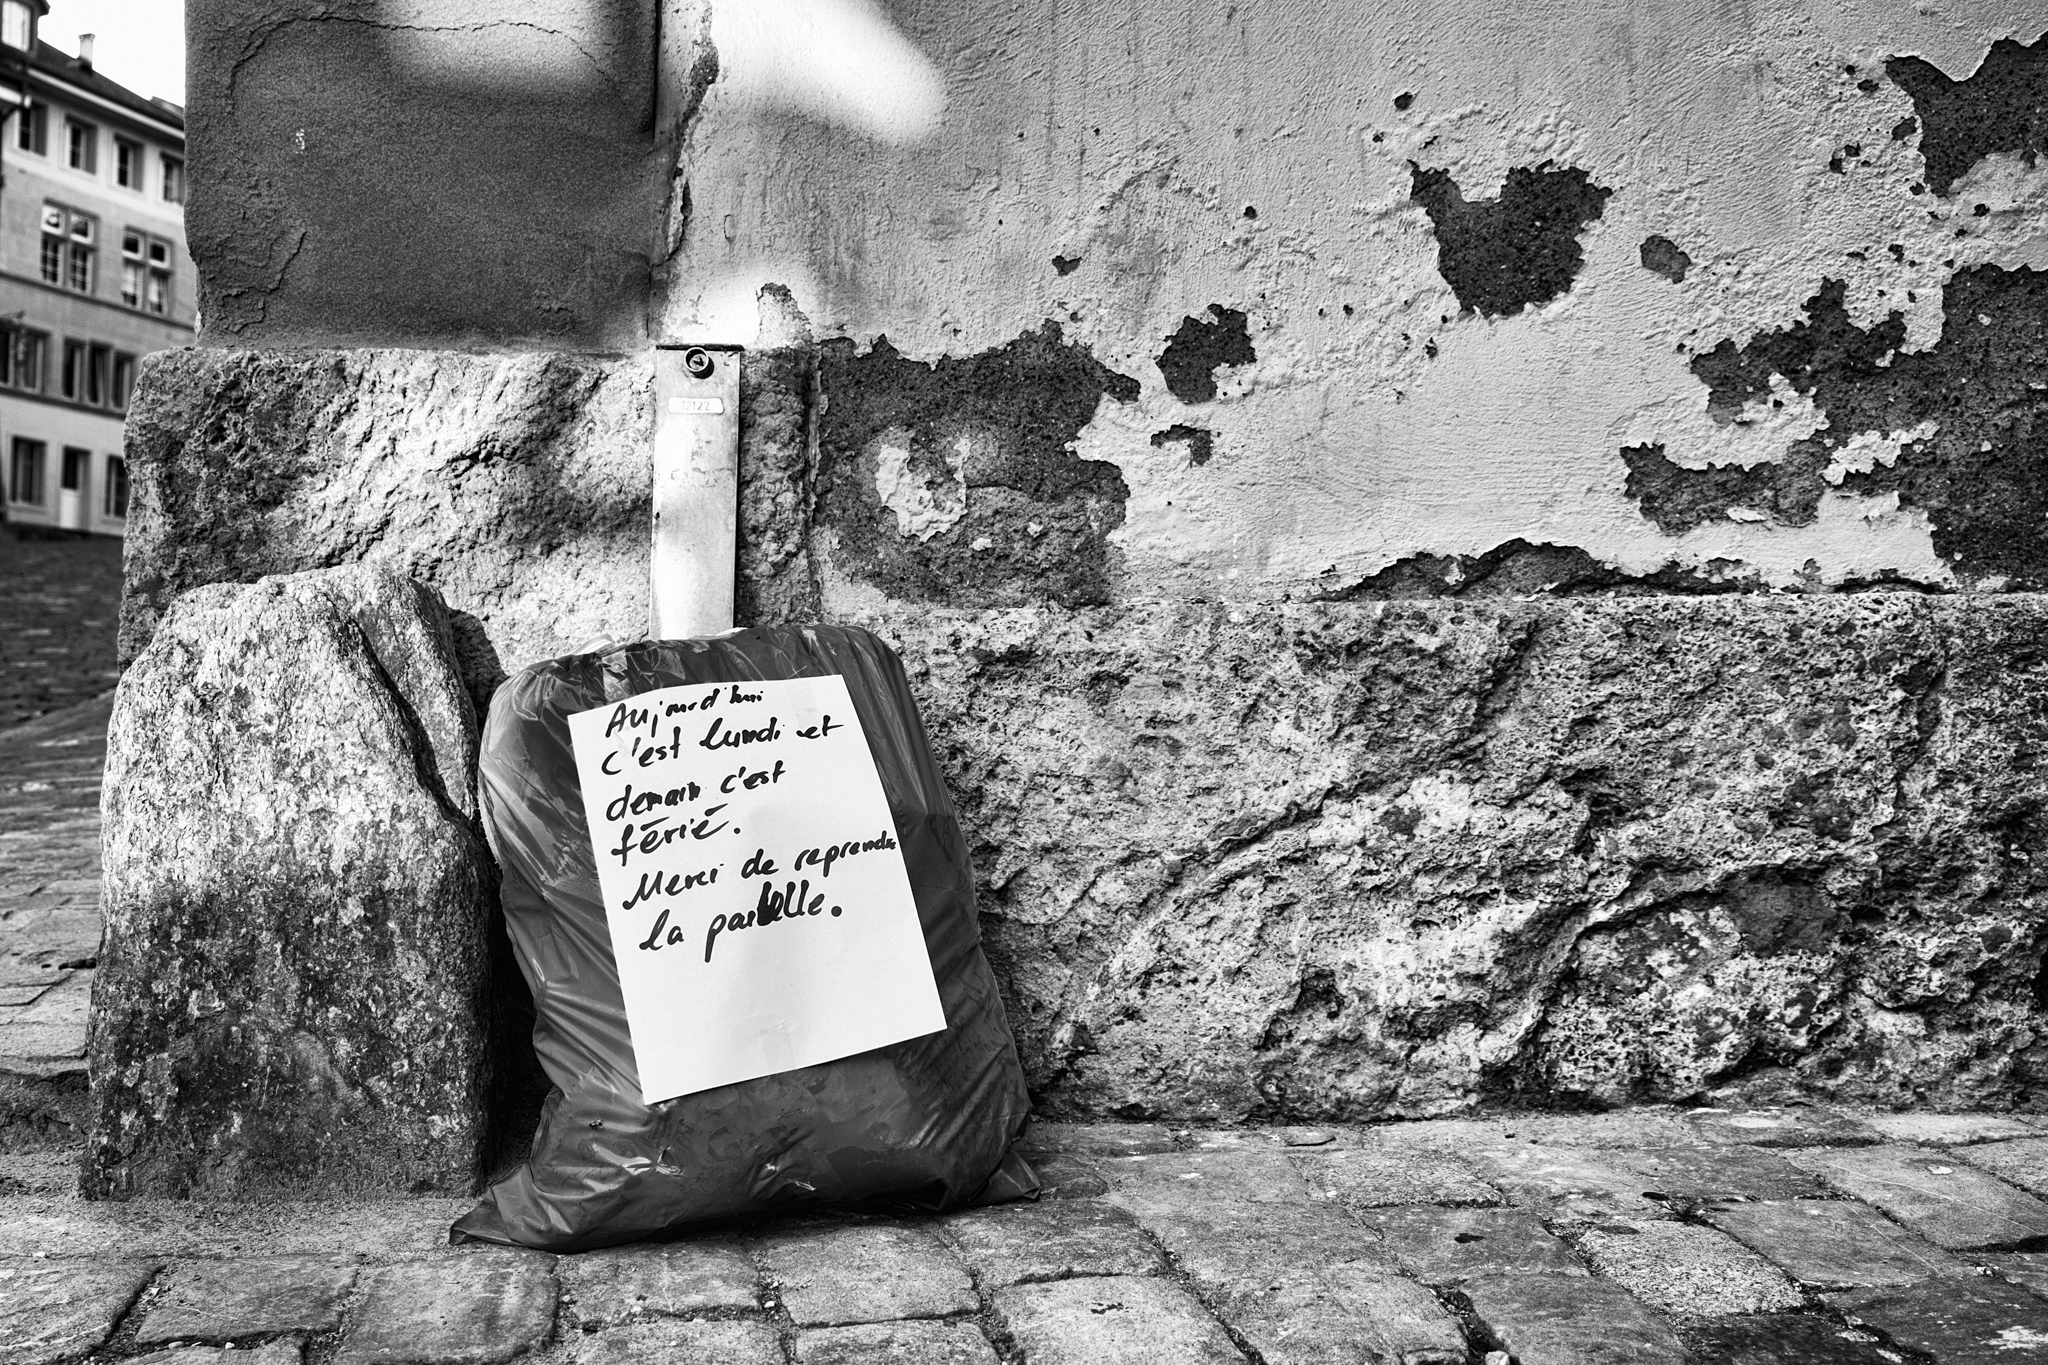 12122
Aujourd'hui
c'est lundi et
demain c'est
férié.
Merci de reprendre
la poubelle.